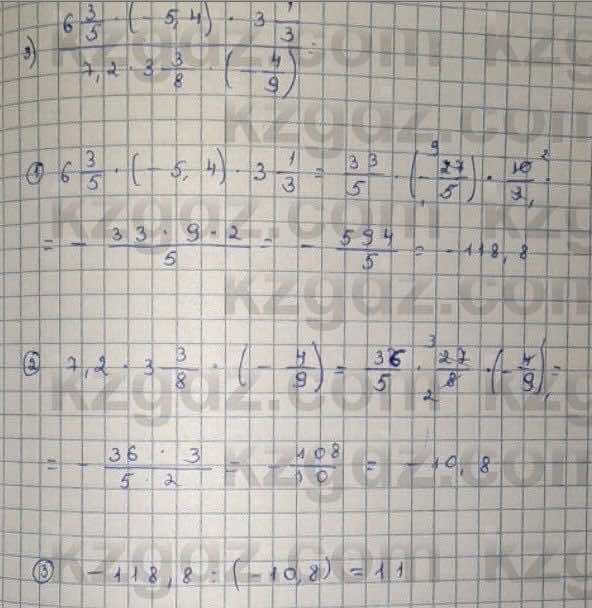 3) (6 3/5 · (-5,4) · 3 1/3) / (7,2 · 3 3/8 · (-4/9)) =
① 6 3/5 · (-5,4) · 3 1/3 = 33/5 · (-27/5) · 10/3 =
= - (33 · 9 · 2)/5 = - 594/5 = -118,8
② 7,2 · 3 3/8 · (-4/9) = 36/5 · 27/8 · (-4/9) =
= - (36 · 3)/(5 · 2) = - 108/10 = -10,8
③ -118,8 : (-10,8) = 11
kzgdz.com